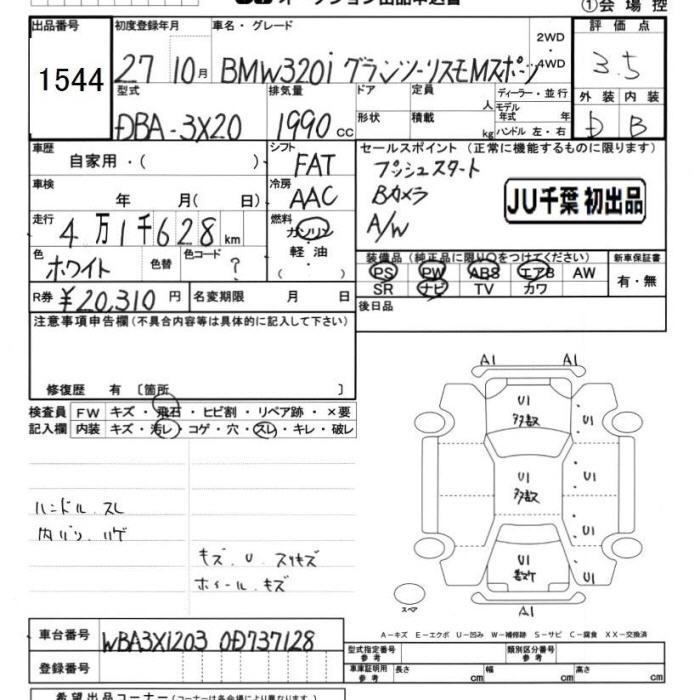 ①会場控
出品番号 初度登録年月 車名・グレード 2WD ・4WD 評価点
1544 27 10月 BMW320i グランツーリスモMスポーツ 3.5
型式 排気量 ドア 定員 人 ディーラー・並行 外装 内装
DBA-3X20 1990 CC 形状 積載 kg モデル年式 年 ハンドル 左・右 D B
車歴 自家用・( ) シフト FAT セールスポイント (正常に機能するものに限ります)
車検 年 月( 日) 冷房 AAC プッシュスタート
Bカメラ
A/W
JU千葉 初出品
走行 4万1千628km 燃料 ガソリン 軽油 ・( )
色 ホワイト 色替 色コード ?
装備品 (純正品に限り○をつけてください) 新車保証書
PS PW ABS エアB AW 有・無
SR ナビ TV カワ
R券 ¥20,310円 名変期限 月 日 後日品
注意事項申告欄 (不具合内容等は具体的に記入して下さい)
修復歴 有 〔箇所 〕
検査員 FW キズ・飛石・ヒビ割・リペア跡・×要
記入欄 内装 キズ・汚レ・コゲ・穴・スレ・キレ・破レ
ハンドル.スレ
内バリ.ハゲ
キズ.U.スリキズ
ホイール.キズ
A1 A1
U1 多数
U1
U1 多数
U1
U1
U1
U1
A1
スペア
A−キズ E−エクボ U−凹み W−補修跡 S−サビ C−腐食 XX−交換済
車台番号 WBA3X1203 0D737128
型式指定番号 参考 類別区分番号 参考
登録番号 車検証明用 参考 長さ cm 幅 cm 高さ cm
希望出品コーナー (コーナーは各会場により異なります。)